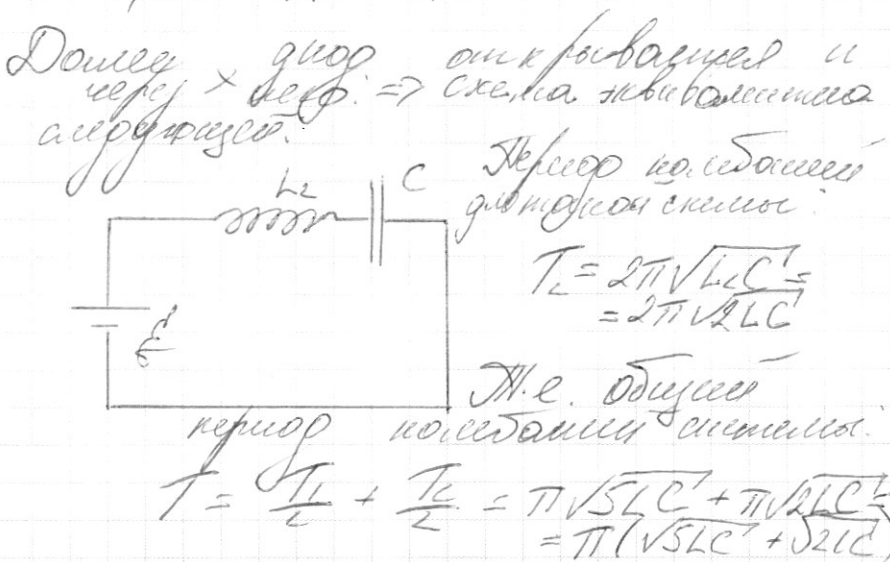 Далее диод открывается и
через × пер. => схема эквивалентна
следующей:
L₂ C
Период колебаний
для такой схемы:
T₂ = 2π√L₂C =
= 2π√2LC
ℰ
Т.е. общий
период колебаний системы:
T = T₁/2 + T₂/2 = π√5LC + π√2LC =
= π(√5LC + √2LC)